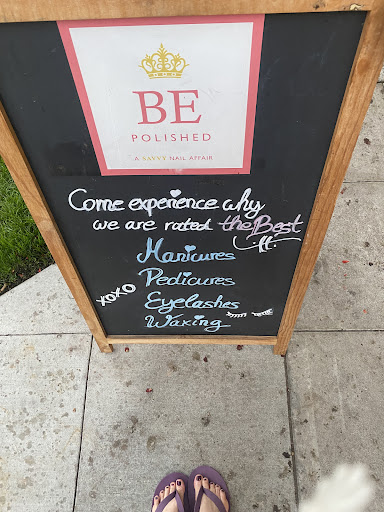 BE
POLISHED
A SAVVY NAIL AFFAIR
Come experience why
we are rated the Best
Manicures
Pedicures
XOXO
Eyelashes
Waxing